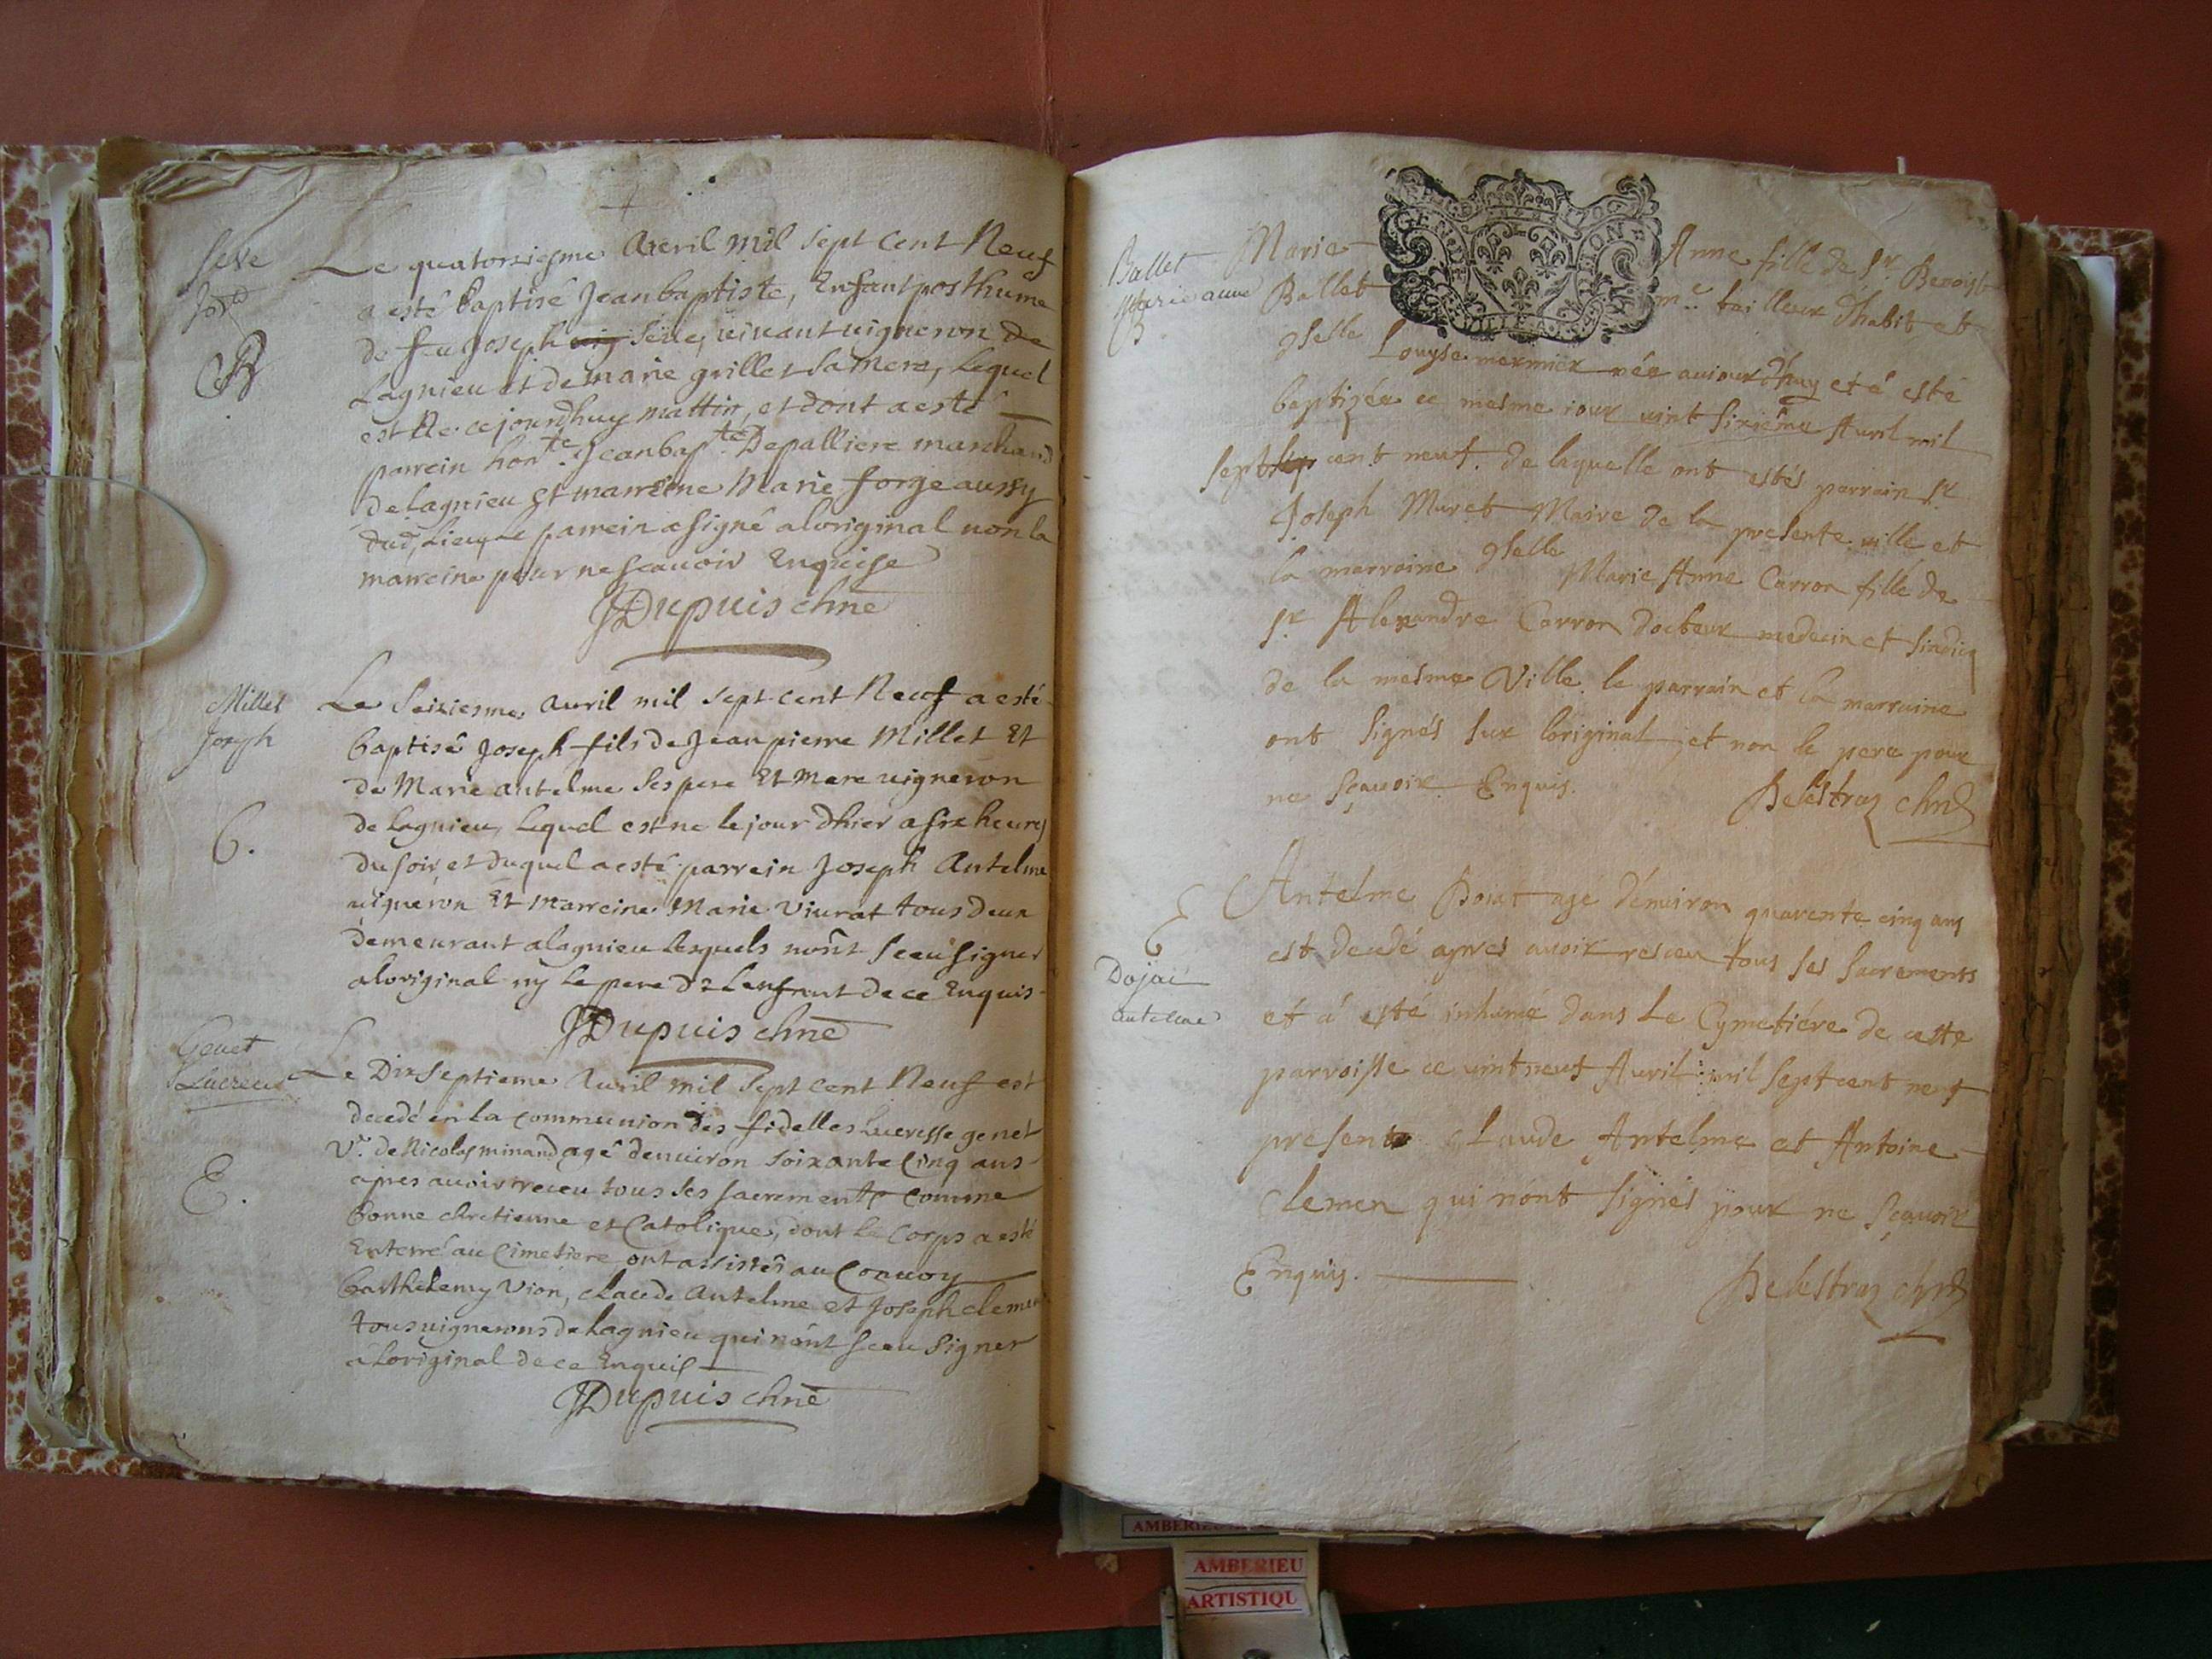 Seve
Le quatorziesme Avril mil sept cent Neuf
a esté baptisé Jean baptiste, Enfant posthume
de feu Joseph Seve, vivant vigneron de
Lagnieu et de marie grillet sa mere, Lequel
est Né cejourdhuy mattin, et dont a esté
parrein hon.te Jean bap.te Depalliere marchand
de Lagnieu Et marreine Marie forge aussy
dud. Lieu, Le parrein a signé aloriginal non la
marreine pour ne scavoir Enquise
JDupuis chne
Millet
Joseph
B.
Le Seiziesme, avril mil sept cent Neuf a esté
baptisé Joseph fils de Jean pierre Millet Et
de Marie antelme ses pere Et Mere vigneron
de Lagnieu, Lequel est né le jour dhier a six heures
du soir, et duquel a esté parrein Joseph Antelme
vigneron Et marreine Marie Viurat tous deux
demeurant a lagnieu Lesquels nont sceu signer
aloriginal ny le pere de Lenfant de ce Enquis
JDupuis chne
Genet
Lucresse
E.
Le Dixseptieme Avril mil sept cent Neuf est
decedé en la communion des fidelles Lucresse genet
V.e de Nicolas minand agé denuiron soixante Cinq ans
apres auoir receu tous ses sacrements comme
bonne chretienne et Catolique, dont le Corps a esté
Enterré au Cimetiere ont assistés au Conuoy
barthelemy Vion, claude Antelme et Joseph clement
tous vignerons de Lagnieu qui nont sceu Signer
a Loriginal de ce Enquis
JDupuis chne
Ballet
Marie anne
B
GEN DE DIION
Marie Anne fille de Sr. Benoist
Ballet m.e tailleur d'habit et
dselle Louyse mermier née aujourd'huy et á esté
baptizée ce mesme iour uint sixiême Auril mil
sept cent neuf. de laquelle ont estés parrain Sr.
Joseph Muret Maire de la presente uille et
la marraine dselle Marie Anne Carron fille de
Sr. Alexandre Carron docteur medecin et sindicq
de la mesme Ville. le parrain et la marraine
ont signés sur l'original et non le pere pour
ne sçauoir Enquis.
Delestraz chne
E
Dojat
antelme
Antelme Dojat agé d'enuiron quarente cinq ans
est decedé apres auoir resceu tous ses sacrements
et á esté inhumé dans le Cymetiére de cette
parroisse ce uint neuf Auril mil sept cent neuf
present Claude Antelme et Antoine
Clemen qui n'ont signés pour ne sçauoir
Enquis.
Delestraz chne
AMBERIEU
AMBERIEU
ARTISTIQU